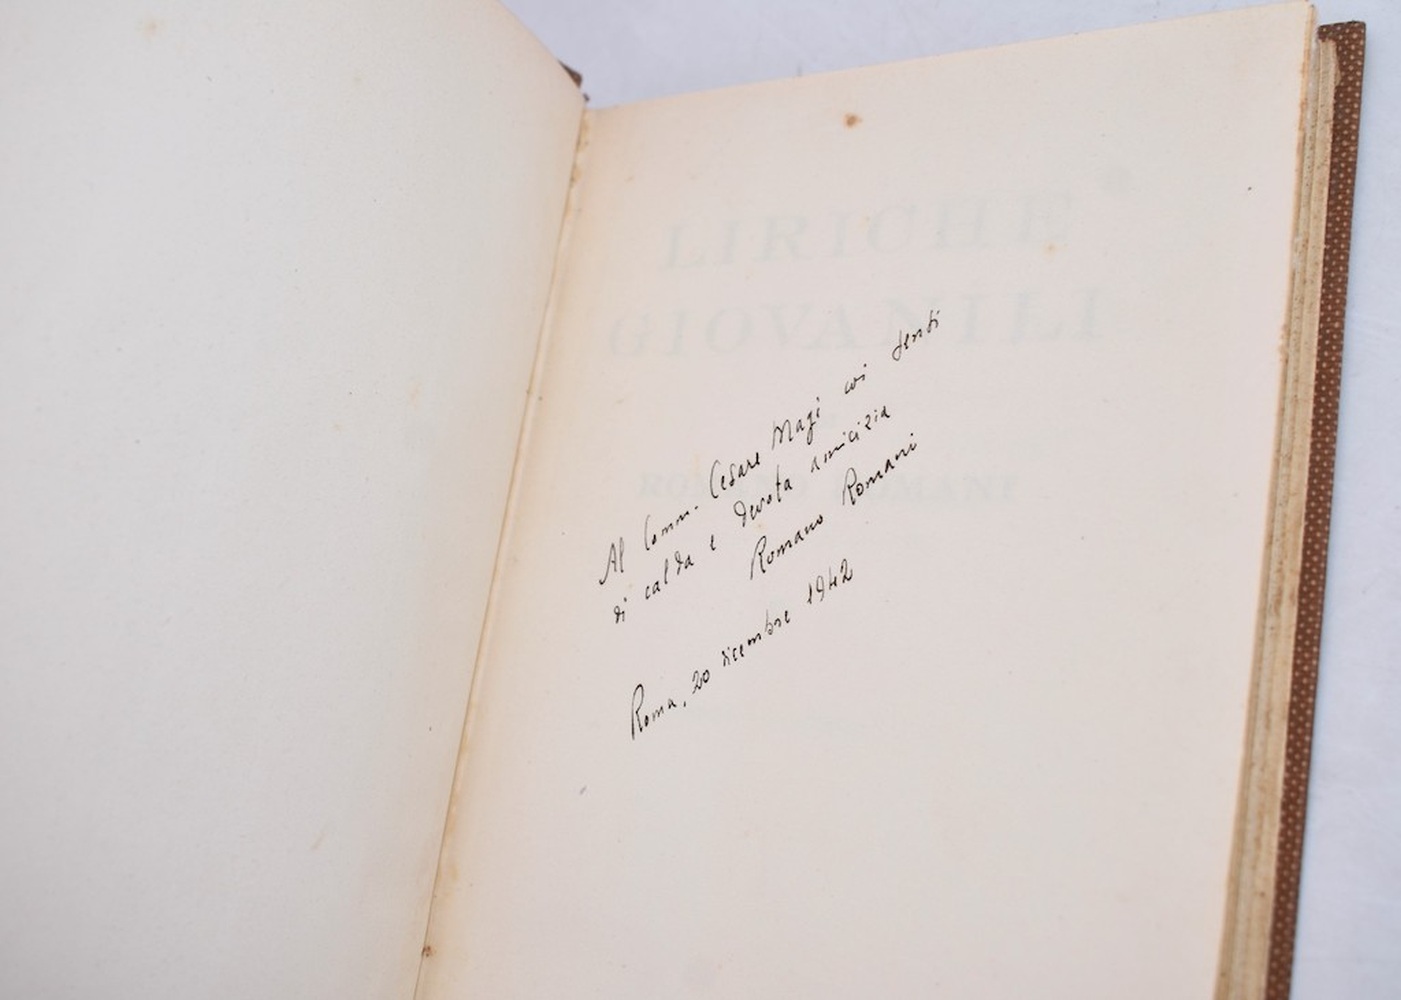 LIRICHE
GIOVANILI
ROMANO ROMANI
Al Comm. Cesare Magi coi sensi
di calda e devota amicizia
Romano Romani
Roma, 20 dicembre 1942